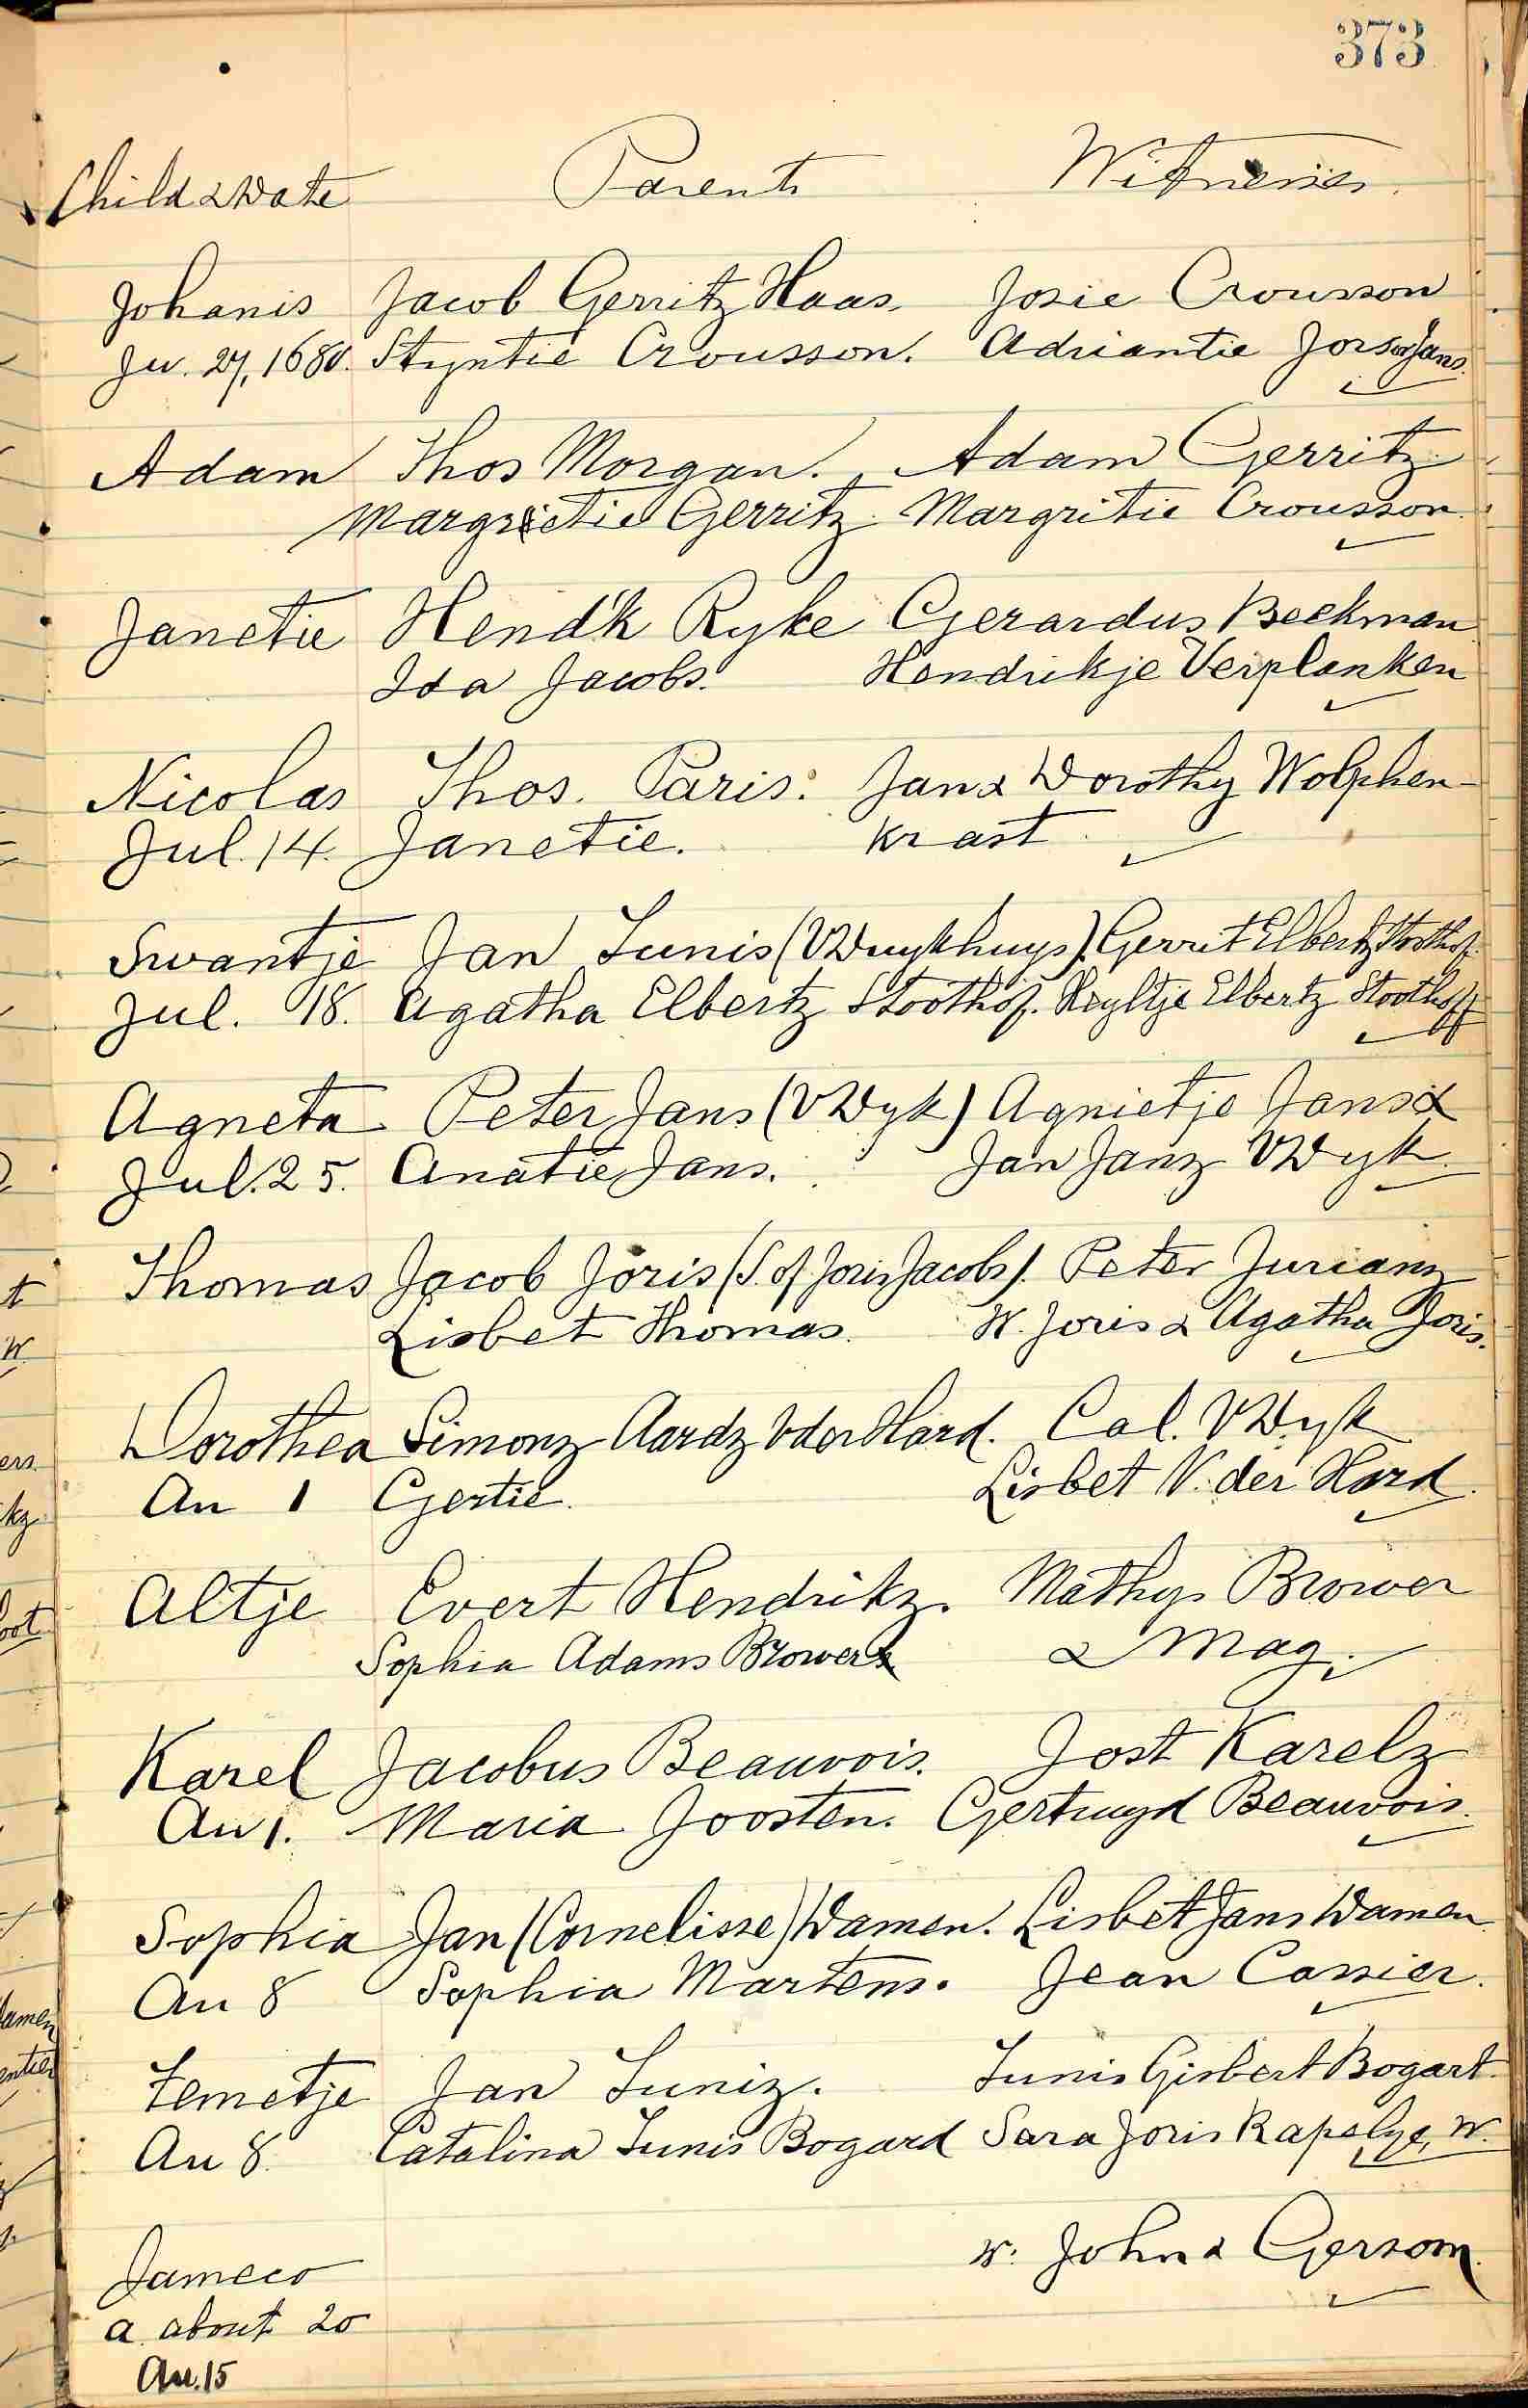 373
Child & Date Parents Witnesses.
Johanis Jacob Gerritz Haas. Josie Crousson
Ju. 27, 1680. Styntie Crousson. Adriantie Jors or Jans.
Adam Thos Morgan. Adam Gerritz
Margrietie Gerritz. Margritie Crousson.
Janetie Hend'k Ryke Gerardus Beekman
Ida Jacobs. Hendrikje Verplanken
Nicolas Thos. Paris. Jan & Dorothy Wolphen-
Jul. 14. Janetie. krast.
Swantje Jan Tunis (VDuykhuys). Gerrit Elbertz Stoothof.
Jul. 18. Agatha Elbertz Stoothof. Heyltje Elbertz Stoothoff
Agneta Peter Jans (VDyk) Agnietje Jans &
Jul. 25. Anatie Jans. Jan Janz VDyk.
Thomas Jacob Joris (S. of Joris Jacobs). Peter Jurianz
Lisbet Thomas. W. Joris & Agatha Joris.
Dorothea Simonz Aardz Vder Hard. Cal. VDyk
Au 1 Gertie. Lisbet V. der Hard.
Altje Evert Hendrikz. Mathys Brower
Sophia Adams Brower & Mag.
Karel Jacobus Beauvois. Jost Karelz
Au 1. Maria Joosten. Gertruyd Beauvois.
Sophia Jan (Cornelisse) Damen. Lisbet Jans Damen
Au 8 Sophia Martens. Jean Cassier.
Femetje Jan Tuniz. Tunis Gisbert Bogart.
Au 8. Catalina Tunis Bogard Sara Joris Rapelye, W.
Jameco w. John & Gersom.
a about 20
Au. 15